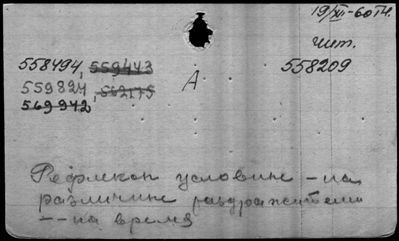 19/XI-60 г.
Чит.
558494, 559443
558209
559824, 562175
А
569942
Рефлексы условные – на
различные раздражители
–– на время